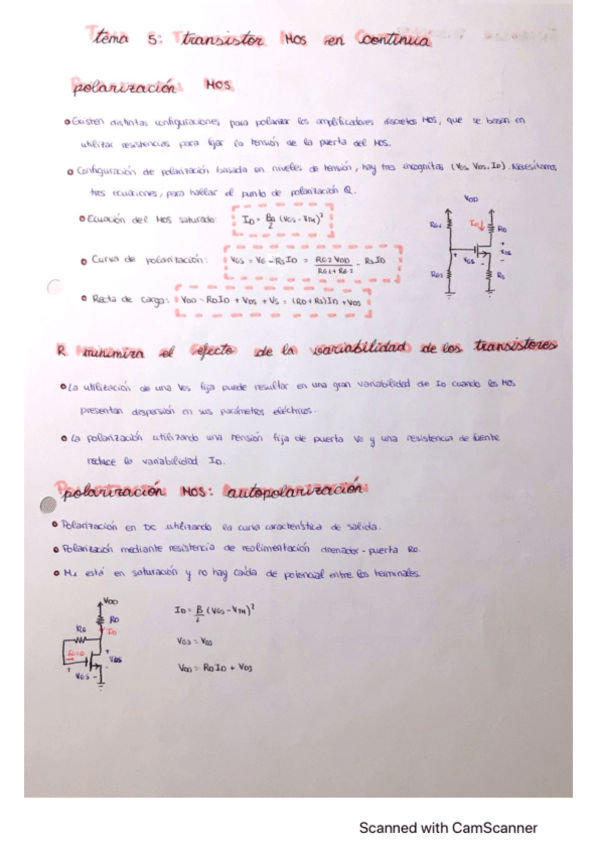 tema 5: transistor MOS en continua
polarización MOS
Existen distintas configuraciones para polarizar los amplificadores discretos MOS, que se basan en
utilizar resistencias para fijar la tensión de la puerta del MOS.
Configuración de polarización basada en niveles de tensión, hay tres incognitas (VGS, VDS, ID). Necesitamos
tres ecuaciones, para hallar el punto de polarización Q.
Ecuación del MOS saturado: ID = βn/2 (VGS - VTN)²
Curva de polarización: VGS = VG - RSID = RG2 VDD / RG1 + RG2 - RSID
Recta de carga: VDD = RDID + VDS + VS = (RD+RS)ID + VDS
VDD
RG1
ID
RD
VDS
VGS
RG2
RS
R minimiza el efecto de la variabilidad de los transistores
La utilización de una VGS fija puede resultar en una gran variabilidad de ID cuando los MOS
presentan dispersión en sus parámetros eléctricos.
La polarización utilizando una tensión fija de puerta VG y una resistencia de fuente
reduce la variabilidad ID.
polarización MOS: autopolarización
Polarización en DC utilizando la curva característica de salida.
Polarización mediante resistencia de realimentación drenador-puerta RG.
M1 está en saturación y no hay caída de potencial entre los terminales.
VDD
RD
RG
ID
VDS
+ VGS -
ID = β/2 (VGS - VTN)²
VGS = VDS
VDD = RDID + VDS
Scanned with CamScanner